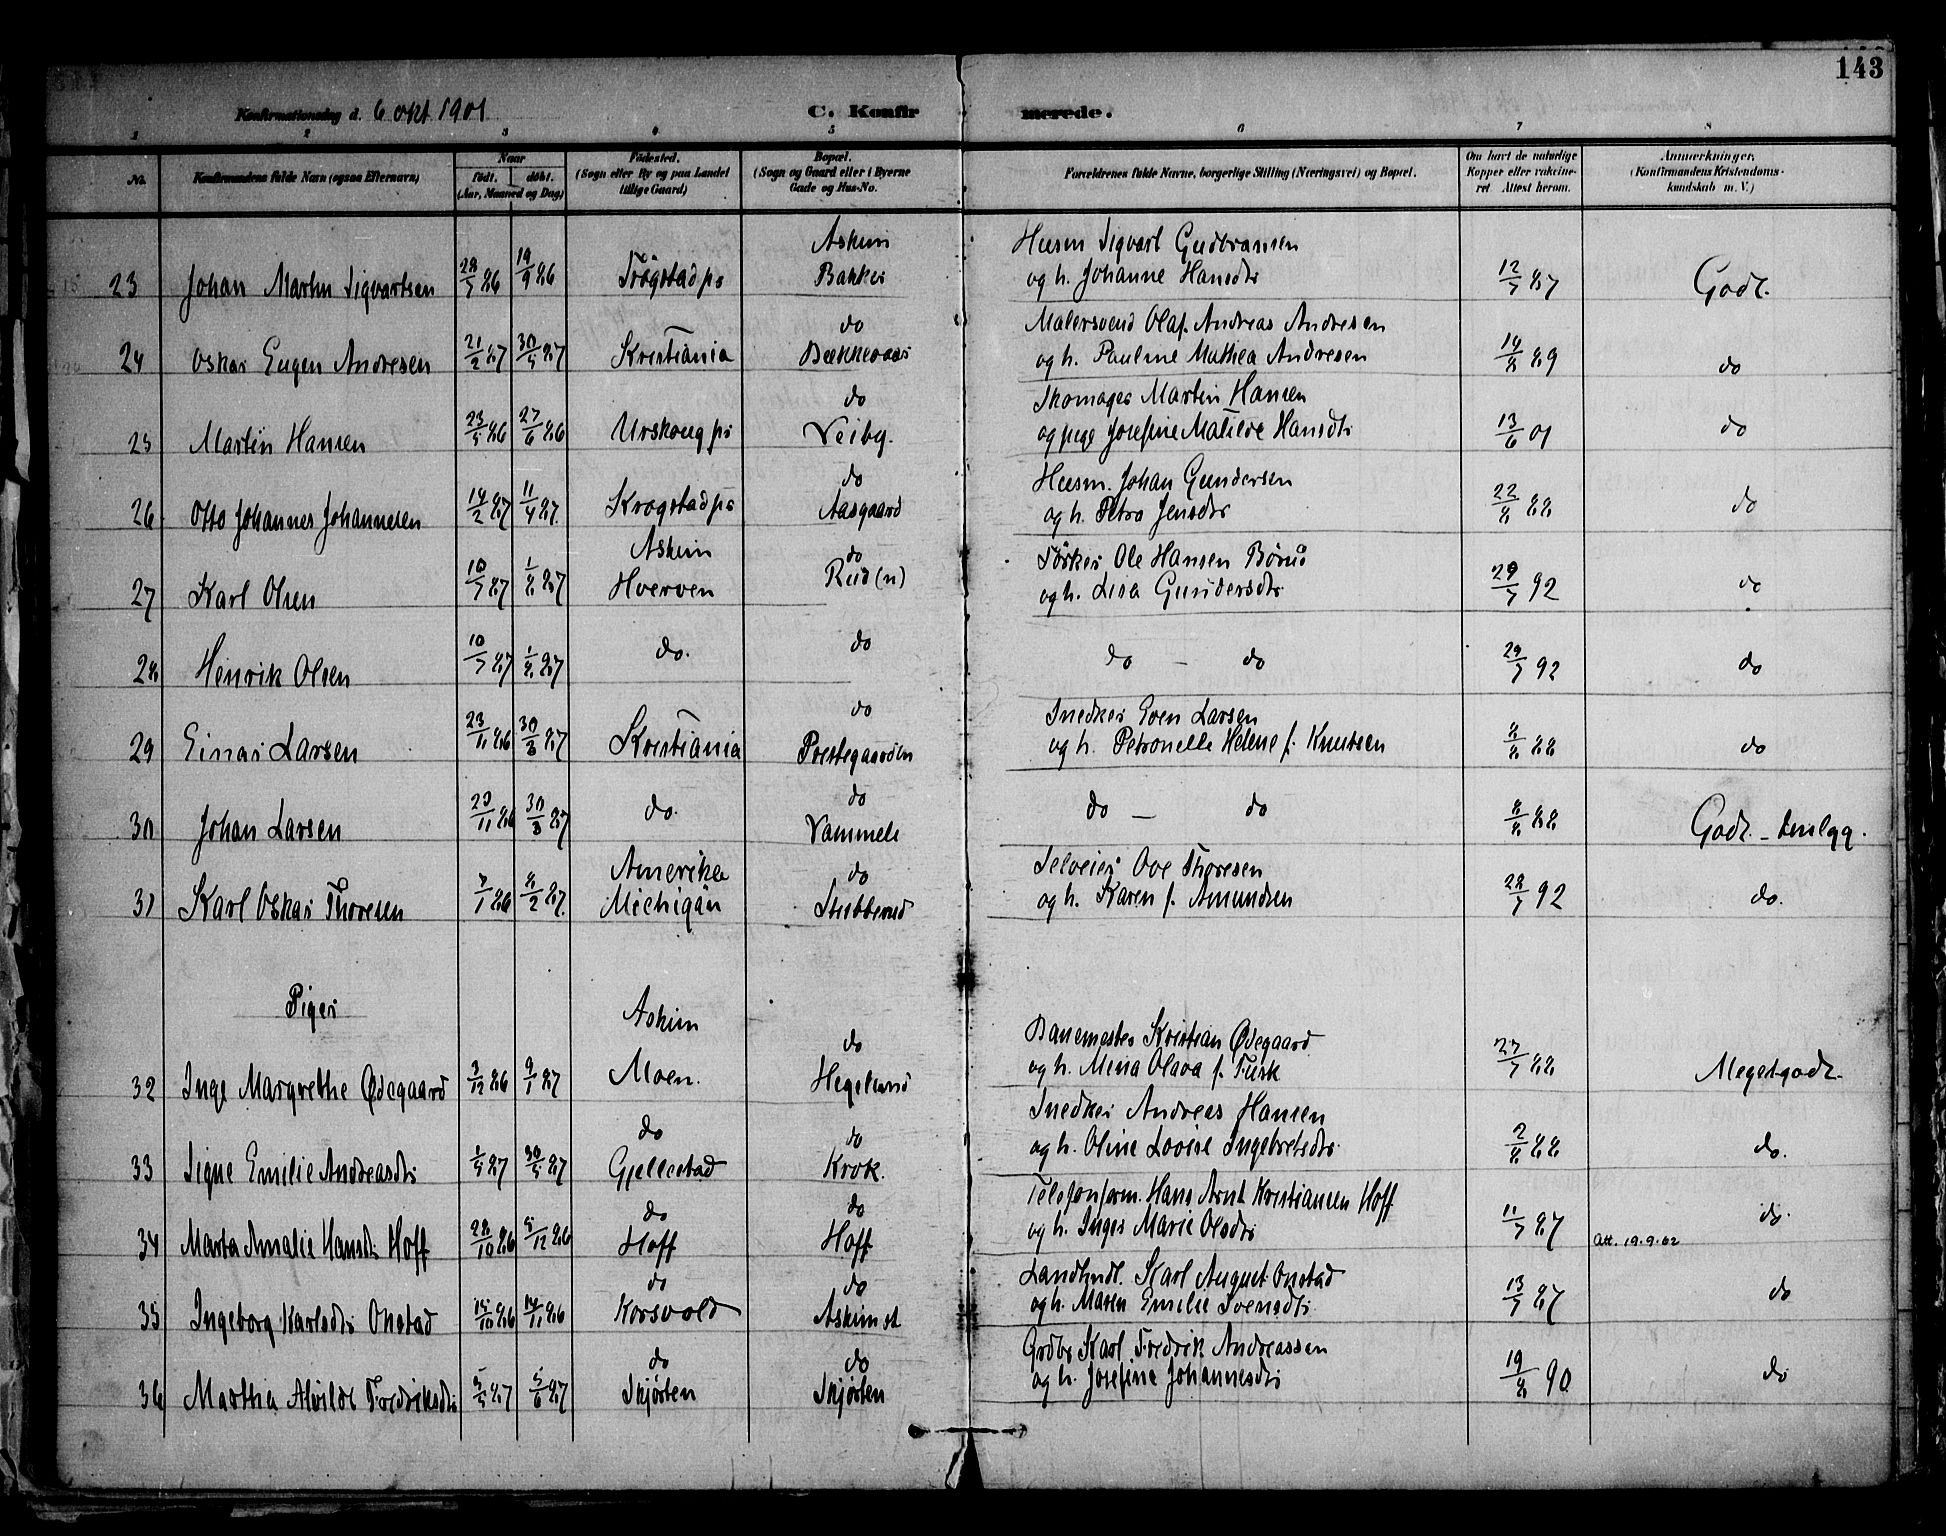 143
Konfirmationsdag d. 6 okt 1901 C. Konfirmerede.
1 2 3 4 5 6 7 8
No. Konfirmandens fulde Navn (ogsaa Efternavn) Naar født. døbt. (Aar, Maaned og Dag) Fødested. (Sogn eller By og paa Landet tillige Gaard) Bopæl. (Sogn og Gaard eller i Byerne Gade og Hus-No. Forældrenes fulde Navne, borgerlige Stilling (Næringsvei) og Bopæl. Om havt de naturlige Kopper eller vakcineret Attest herom. Anmærkninger. (Konfirmandens Kristendomskundskab m. V.)
Askim Husm Sigvart Gudbransen
23 Johan Martin Sigvartsen 28/7 86 19/9 86 Trøgstad ps Bakker og h. Johanne Hansdtr 12/7 87 Godt.
do Malersvend Olaf Andreas Andresen
24 Oskar Eugen Andresen 21/2 87 30/5 87 Kristiania Bækkevar og h. Pauline Mathea Andresen 14/8 89 do
do Skomager Martin Hansen
25 Martin Hansen 23/5 86 27/6 86 Urskoug ps Veiby. og pige Josefine Matilde Hansdtr 13/6 01 do
do Husm. Johan Gundersen
26 Otto Johannes Johannesen 14/2 87 11/4 87. Krogstad ps Aasgaard og h. Petra Jensdtr 22/8 88 do
Askim do Tørker Ole Hansen Børud
27 Karl Olsen 10/7 87 1/8 87 Hverven Rud (n) og h. Lisa Gundersdtr 29/7 92 do
28 Henrik Olsen 10/7 87 1/8 87 do. do do - do 29/7 92 do
do Snedker Even Larsen
29 Einar Larsen 23/11 86 30/3 87 Kristiania Prestegaarden og h. Petronelle Helene f. Knutsen 8/8 88 do
do
30 Johan Larsen 23/11 86 30/3 87 do. Vammeli do - do 8/8 88 Godt.
Amerika do Selveier Ove Thoresen
31 Karl Oskar Thoresen 7/1 86 8/2 87. Michigan Stubberud og h. Karen f. Amundsen 28/7 92 do.
Piger
Askim do Banemester Kristian Ødegaard
32 Inga Margrethe Ødegaard 3/12 86 9/1 87 Moen. Hegelund og h. Mina Olava f. Fusk 27/7 88 Megetgodt.
do do Snedker Andreas Hansen
33 Signe Emilie Andreasdtr 1/5 87 30/5 87 Gjellestad Krok. og h. Oline Lovise Ingebretsdtr 2/8 88 do.
do do Telefonform. Hans Arnt Kristiansen Hoff
34 Marta Amalie Hansdtr Hoff 28/10 86 5/12 86 Hoff Hoff og h. Inger Marie Olsdtr 11/7 87 Att. 19.9.62 do.
do do Landhndl. Karl August Onstad
35 Ingeborg Karlsdtr Onstad 15/10 86 14/11 86 Korsvold Askim st og h. Maren Emilie Svensdtr 13/7 87 do
do do Grdbr Karl Fredrik Andreassen
36 Marthia Alvilde Fredriksdtr 5/5 87 5/6 87 Skjørten Skjørten og h. Josefine Johannesdtr 19/8 90 do